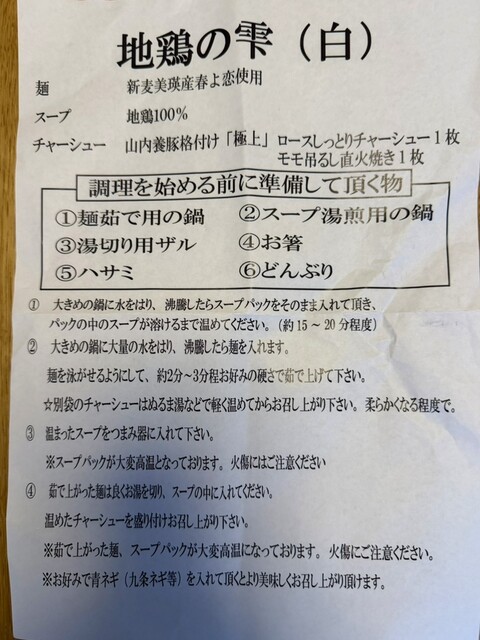 地鶏の雫（白）
麺 新麦美瑛産春よ恋使用
スープ 地鶏100%
チャーシュー 山内養豚格付け「極上」ロースしっとりチャーシュー1枚
モモ吊るし直火焼き1枚
調理を始める前に準備して頂く物
①麺茹で用の鍋 ②スープ湯煎用の鍋
③湯切り用ザル ④お箸
⑤ハサミ ⑥どんぶり
① 大きめの鍋に水をはり、沸騰したらスープパックをそのまま入れて頂き、
パックの中のスープが溶けるまで温めてください。（約15～20分程度）
② 大きめの鍋に大量の水をはり、沸騰したら麺を入れます。
麺を泳がせるようにして、約2分～3分程お好みの硬さで茹で上げて下さい。
☆別袋のチャーシューはぬるま湯などで軽く温めてからお召し上がり下さい。柔らかくなる程度で。
③ 温まったスープをつまみ器に入れて下さい。
※スープパックが大変高温となっております。火傷にはご注意ください
④ 茹で上がった麺は良くお湯を切り、スープの中に入れてください。
温めたチャーシューを盛り付けお召し上がり下さい。
※茹で上がった麺、スープパックが大変高温になっております。火傷にご注意ください。
※お好みで青ネギ（九条ネギ等）を入れて頂くとより美味しくお召し上がり頂けます。